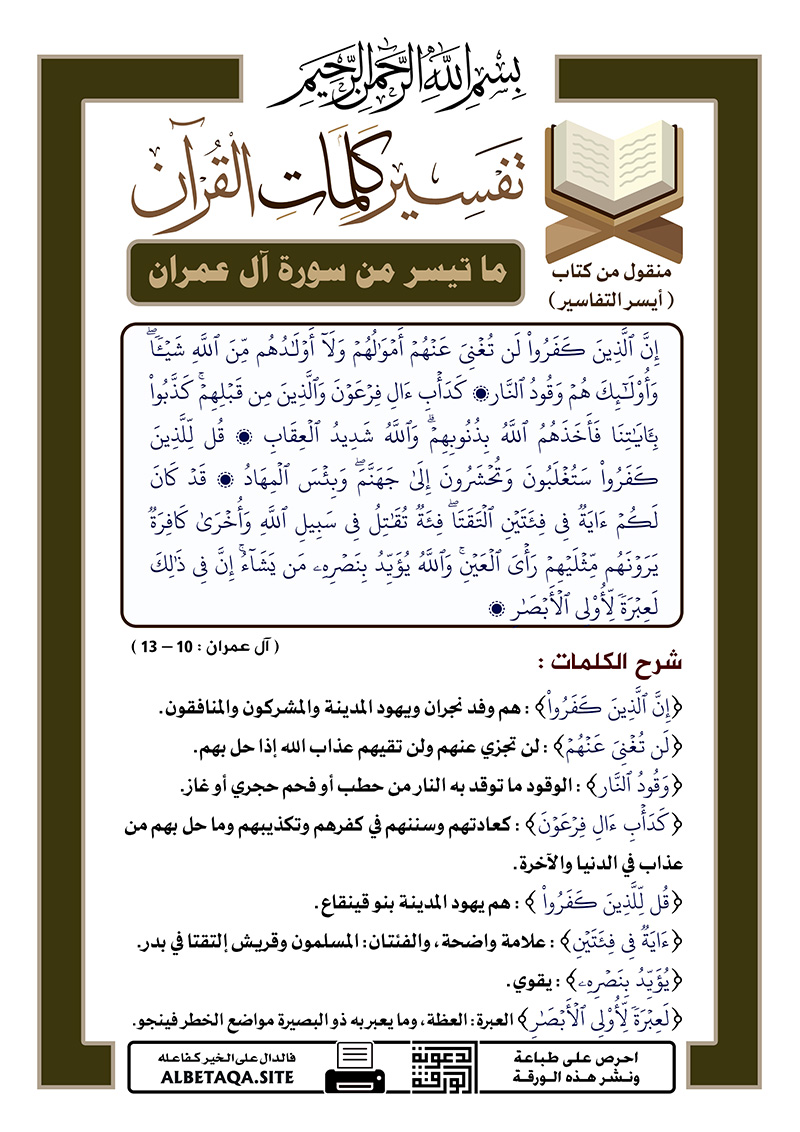 بِسْمِ اللَّهِ الرَّحْمَٰنِ الرَّحِيمِ
تَفْسِير كَلِمَاتِ الْقُرْآن
منقول من كتاب
( أيسر التفاسير )
ما تيسر من سورة آل عمران
إِنَّ ٱلَّذِينَ كَفَرُوا۟ لَن تُغْنِىَ عَنْهُمْ أَمْوَٰلُهُمْ وَلَآ أَوْلَـٰدُهُم مِّنَ ٱللَّهِ شَيْـًٔا ۖ
وَأُو۟لَـٰٓئِكَ هُمْ وَقُودُ ٱلنَّارِ ۞ كَدَأْبِ ءَالِ فِرْعَوْنَ وَٱلَّذِينَ مِن قَبْلِهِمْ ۚ كَذَّبُوا۟
بِـَٔايَـٰتِنَا فَأَخَذَهُمُ ٱللَّهُ بِذُنُوبِهِمْ ۗ وَٱللَّهُ شَدِيدُ ٱلْعِقَابِ ۞ قُل لِّلَّذِينَ
كَفَرُوا۟ سَتُغْلَبُونَ وَتُحْشَرُونَ إِلَىٰ جَهَنَّمَ ۖ وَبِئْسَ ٱلْمِهَادُ ۞ قَدْ كَانَ
لَكُمْ ءَايَةٌ فِى فِئَتَيْنِ ٱلْتَقَتَا ۖ فِئَةٌ تُقَـٰتِلُ فِى سَبِيلِ ٱللَّهِ وَأُخْرَىٰ كَافِرَةٌ
يَرَوْنَهُم مِّثْلَيْهِمْ رَأْىَ ٱلْعَيْنِ ۚ وَٱللَّهُ يُؤَيِّدُ بِنَصْرِهِۦ مَن يَشَآءُ ۗ إِنَّ فِى ذَٰلِكَ
لَعِبْرَةً لِّأُو۟لِى ٱلْأَبْصَـٰرِ ۞
( آل عمران : 10 – 13 )
شرح الكلمات :
﴿إِنَّ ٱلَّذِينَ كَفَرُوا۟﴾ : هم وفد نجران ويهود المدينة والمشركون والمنافقون.
﴿لَن تُغْنِىَ عَنْهُمْ﴾ : لن تجزي عنهم ولن تقيهم عذاب الله إذا حل بهم.
﴿وَقُودُ ٱلنَّارِ﴾ : الوقود ما توقد به النار من حطب أو فحم حجري أو غاز.
﴿كَدَأْبِ ءَالِ فِرْعَوْنَ﴾ : كعادتهم وسننهم في كفرهم وتكذيبهم وما حل بهم من
عذاب في الدنيا والآخرة.
﴿قُل لِّلَّذِينَ كَفَرُوا۟ ﴾ : هم يهود المدينة بنو قينقاع.
﴿ءَايَةٌ فِى فِئَتَيْنِ﴾ : علامة واضحة، والفئتان: المسلمون وقريش إلتقتا في بدر.
﴿يُؤَيِّدُ بِنَصْرِهِۦ﴾ : يقوي.
﴿لَعِبْرَةً لِّأُو۟لِى ٱلْأَبْصَـٰرِ﴾ العبرة: العظة، وما يعبر به ذو البصيرة مواضع الخطر فينجو.
احرص على طباعة
ونشر هذه الورقة
الدعوية
الورقة
فالدال على الخير كفاعله
ALBETAQA.SITE